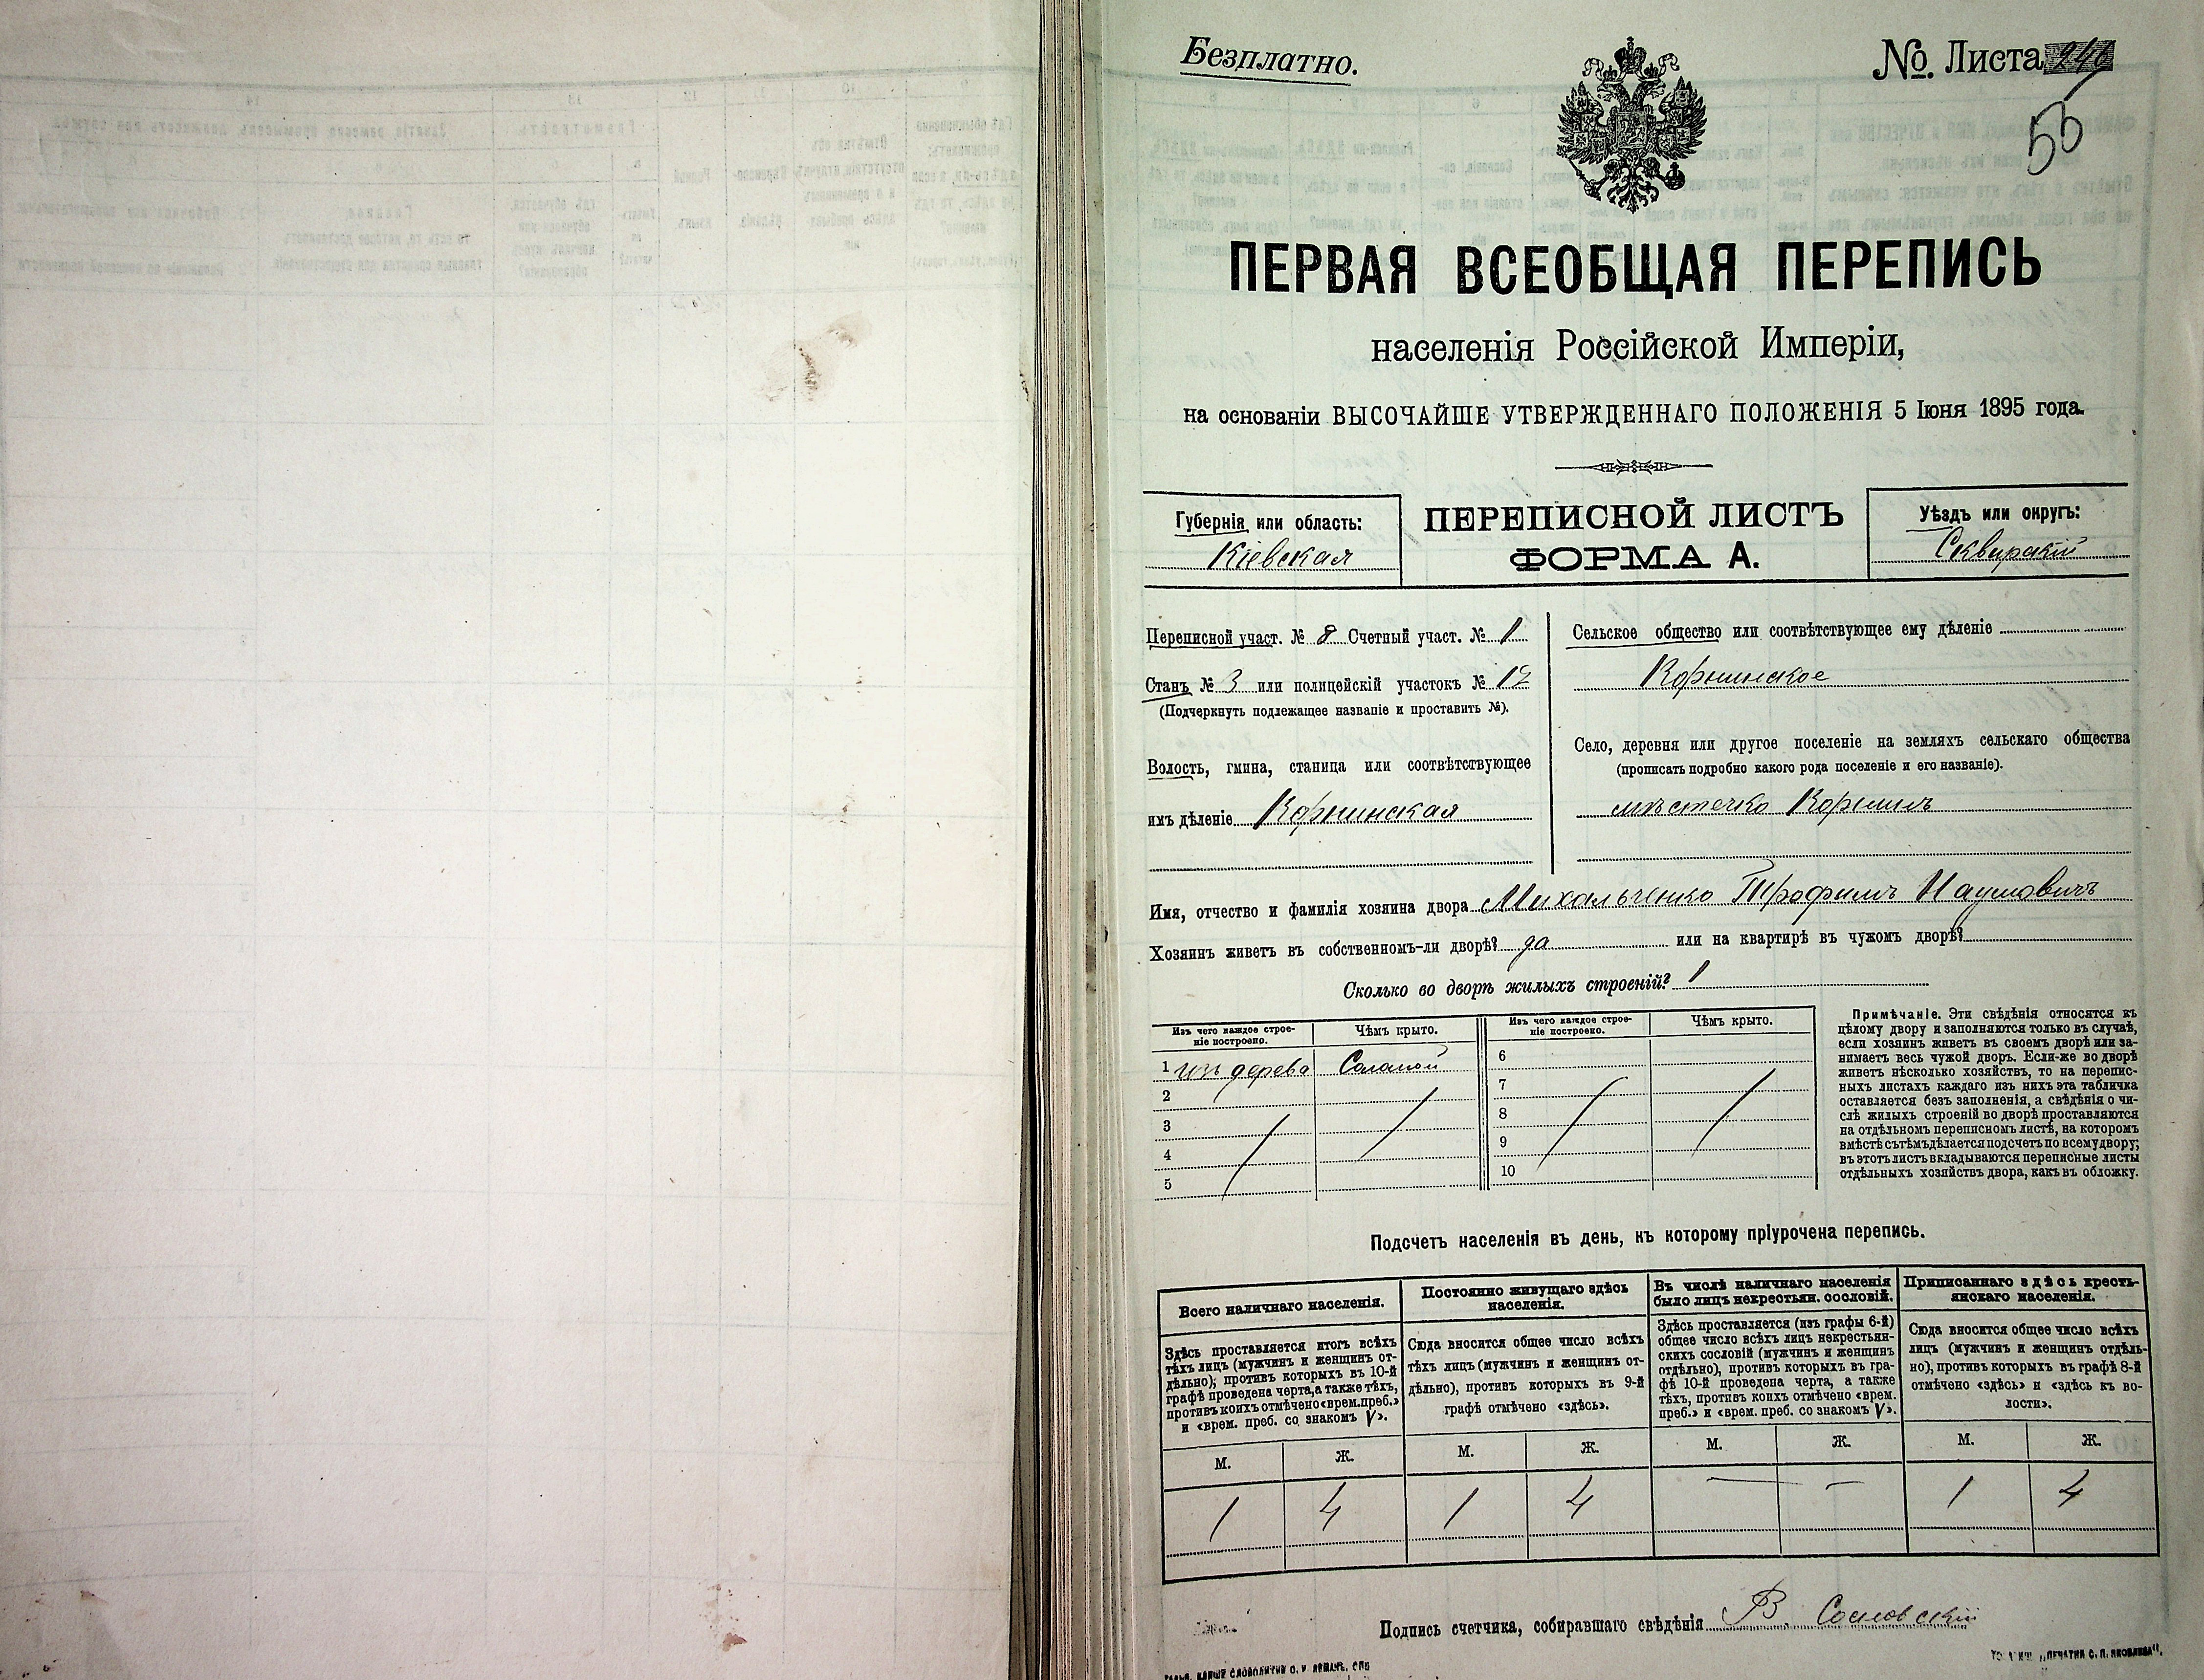 Безплатно.
№. Листа 240
56
ПЕРВАЯ ВСЕОБЩАЯ ПЕРЕПИСЬ
населенія Россійской Имперіи,
на основаніи ВЫСОЧАЙШЕ УТВЕРЖДЕННАГО ПОЛОЖЕНІЯ 5 Іюня 1895 года.
Губернія или область:
Кіевская
ПЕРЕПИСНОЙ ЛИСТЪ
ФОРМА А.
Уѣздъ или округъ:
Сквирскій
Переписной участ. № 8 Счетный участ. № 1
Станъ № 3 или полицейскій участокъ № 12
(Подчеркнуть подлежащее названіе и проставить №).
Волость, гмина, станица или соотвѣтствующее
имъ дѣленіе Корнинская
Сельское общество или соотвѣтствующее ему дѣленіе
Корнинское
Село, деревня или другое поселеніе на земляхъ сельскаго общества
(прописать подробно какого рода поселеніе и его названіе).
мѣстечко Корнинъ
Имя, отчество и фамилія хозяина двора Михальченко Трофимъ Наумовичъ
Хозяинъ живетъ въ собственномъ-ли дворѣ? да или на квартирѣ въ чужомъ дворѣ?
Сколько во дворѣ жилыхъ строеній? 1
Изъ чего каждое строе-
ніе построено.
Чѣмъ крыто.
1 изъ дерева Соломой
2
3
4
5
Изъ чего каждое строе-
ніе построено.
Чѣмъ крыто.
6
7
8
9
10
Примѣчаніе. Эти свѣдѣнія относятся къ
цѣлому двору и заполняются только въ случаѣ,
если хозяинъ живетъ въ своемъ дворѣ или за-
нимаетъ весь чужой дворъ. Если-же во дворѣ
живетъ нѣсколько хозяйствъ, то на перепис-
ныхъ листахъ каждаго изъ нихъ эта табличка
оставляется безъ заполненія, а свѣдѣнія о чи-
слѣ жилыхъ строеній во дворѣ проставляются
на отдѣльномъ переписномъ листѣ, на которомъ
вмѣстѣ съ тѣмъ дѣлается подсчетъ по всему двору;
въ этотъ листъ вкладываются переписные листы
отдѣльныхъ хозяйствъ двора, какъ въ обложку.
Подсчетъ населенія въ день, къ которому пріурочена перепись.
Всего наличнаго населенія.
Здѣсь проставляется итогъ всѣхъ
тѣхъ лицъ (мужчинъ и женщинъ от-
дѣльно), противъ которыхъ въ 10-й
графѣ проведена черта, а также тѣхъ,
противъ коихъ отмѣчено «врем. преб.»
и «врем. преб. со знакомъ V».
М. Ж.
1 4
Постоянно живущаго здѣсь
населенія.
Сюда вносится общее число всѣхъ
тѣхъ лицъ (мужчинъ и женщинъ от-
дѣльно), противъ которыхъ въ 9-й
графѣ отмѣчено «здѣсь».
М. Ж.
1 4
Въ числѣ наличнаго населенія
было лицъ некрестьян. сословій.
Здѣсь проставляется (изъ графы 6-й)
общее число всѣхъ лицъ некрестьян-
скихъ сословій (мужчинъ и женщинъ
отдѣльно), противъ которыхъ въ гра-
фѣ 10-й проведена черта, а также
тѣхъ, противъ коихъ отмѣчено «врем.
преб.» и «врем. преб. со знакомъ V».
М. Ж.
— —
Приписаннаго здѣсь кресть-
янскаго населенія.
Сюда вносится общее число всѣхъ
лицъ (мужчинъ и женщинъ отдѣль-
но), противъ которыхъ въ графѣ 8-й
отмѣчено «здѣсь» и «здѣсь къ во-
лости».
М. Ж.
1 4
Подпись счетчика, собиравшаго свѣдѣнія В. Сосновскій